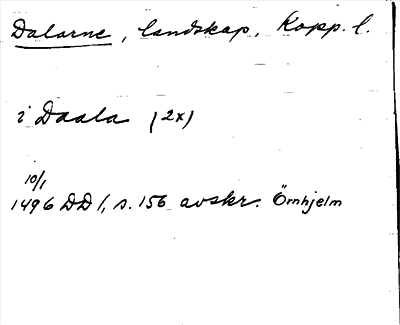 Dalarne, landskap, Kopp. l.
i Daala (2x)
10/1
1496 DD 1, s. 156 avskr. Örnhjelm